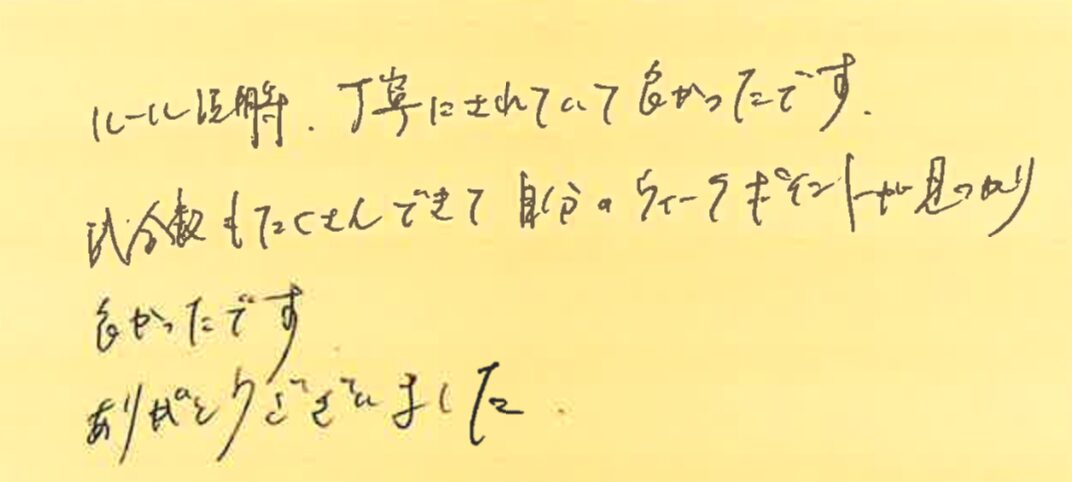 ルール説明、丁寧にされていて良かったです.
試合数もたくさんできて自分のウィークポイントが見つかり
良かったです
ありがとうございました.